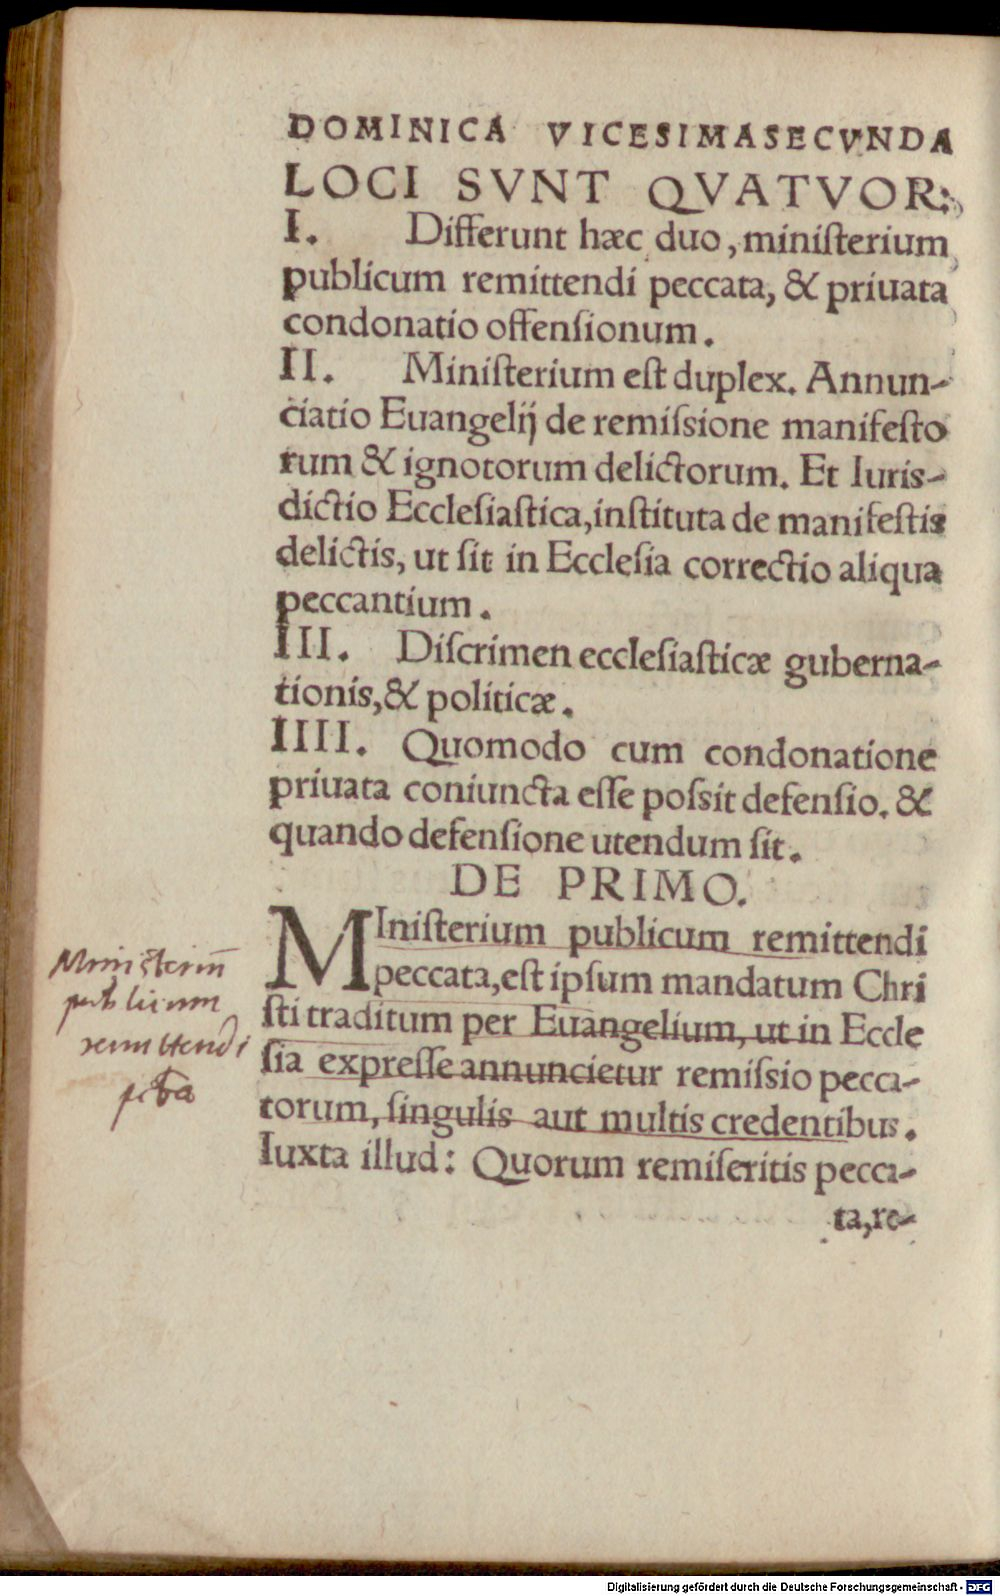 DOMINICA VICESIMASECVNDA
LOCI SVNT QVATVOR:
I. Differunt hæc duo, miniſterium
publicum remittendi peccata, & priuata
condonatio offenſionum.
II. Miniſterium eſt duplex. Annun-
ciatio Euangelij de remiſsione manifeſto
rum & ignotorum delictorum. Et Iuris-
dictio Eccleſiaſtica, inſtituta de manifeſtis
delictis, ut ſit in Eccleſia correctio aliqua
peccantium.
III. Diſcrimen eccleſiaſticæ guberna-
tionis, & politicæ.
IIII. Quomodo cum condonatione
priuata coniuncta eſſe poſsit defenſio. &
quando defenſione utendum ſit.
DE PRIMO.
MIniſterium publicum remittendi
peccata, eſt ipſum mandatum Chri
ſti traditum per Euangelium, ut in Eccle
ſia expreſſe annuncietur remiſsio pecca-
torum, ſingulis aut multis credentibus.
Iuxta illud: Quorum remiſeritis pecca-
ta, re-
Ministeriū
publicum
remittendi
pctā
Digitalisierung gefördert durch die Deutsche Forschungsgemeinschaft - DFG